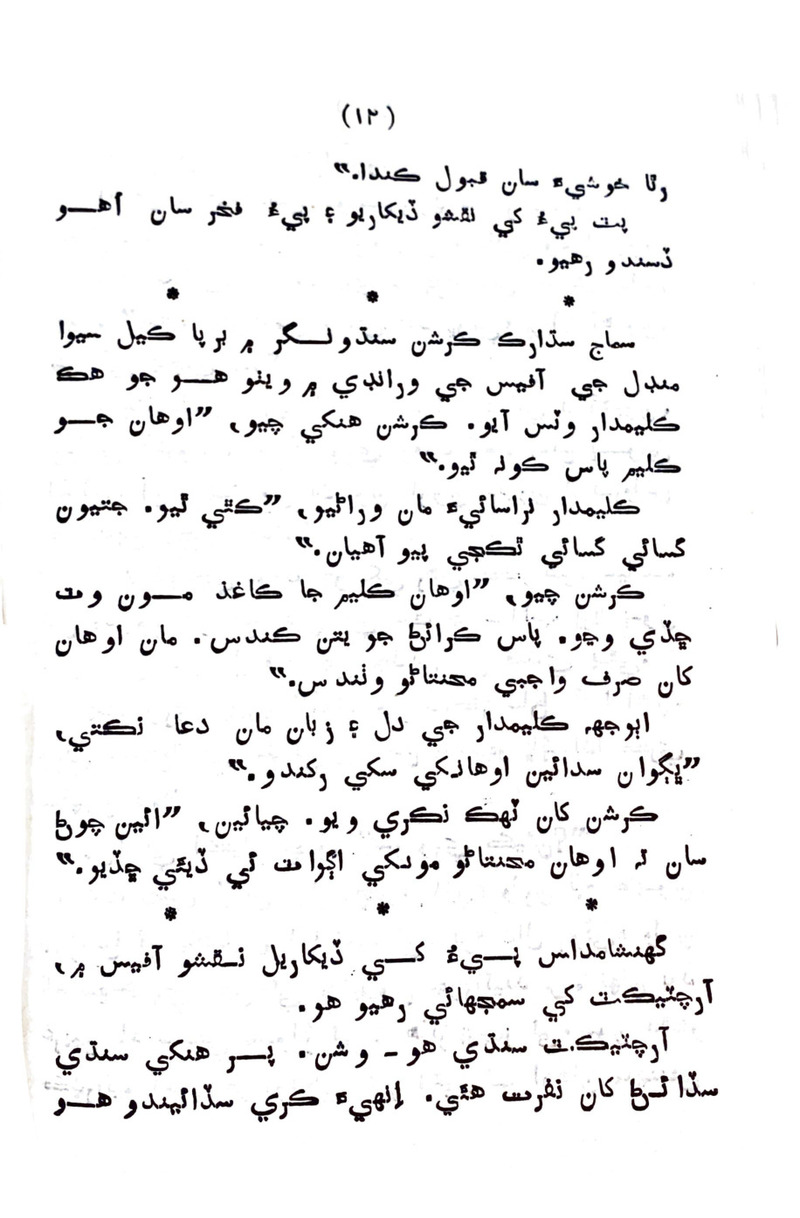 (١٢)
رٿا خوشيءَ سان قبول ڪندا.”
پٽ پيءُ کي نقشو ڏيکاريو ۽ پيءُ فخر سان اُهو
ڏسندو رهيو.
* * *
سماج سڌارڪ ڪرشن سنڌونگر ۾ برپا ڪيل سيوا
منڊل جي آفيس جي ورانڊي ۾ ويٺو هو جو هڪ
ڪليمدار وٽس آيو. ڪرشن هنکي چيو، ”اوهان جو
ڪليم پاس ڪونہ ٿيو.”
ڪليمدار نراسائيءَ مان وراڻيو، ”ڪٿي ٿيو. جتيون
گسائي گسائي ٿڪجي پيو آهيان.”
ڪرشن چيو، ”اوهان ڪليم جا ڪاغذ مون وٽ
ڇڏي وڃو. پاس ڪرائڻ جو يتن ڪندس. مان اوهان
کان صرف واجبي محنتاڻو وٺندس.”
اٻوجهہ ڪليمدار جي دل ۽ زبان مان دعا نڪتي،
”ڀڳوان سدائين اوهانکي سکي رکندو.”
ڪرشن کان ٽهڪ نڪري ويو. چيائين، ”ائين چوڻ
سان نہ اوهان محنتاڻو مونکي اڳواٽ ئي ڏيئي ڇڏيو.”
* * *
گهنشامداس پيءُ کي ڏيکاريل نقشو آفيس ۾،
آرچٽيڪٽ کي سمجهائي رهيو هو.
آرچٽيڪٽ سنڌي هو ـ وشن. پر هنکي سنڌي
سڏائڻ کان نفرت هئي. اِنهيءَ ڪري سڏائيندو هو